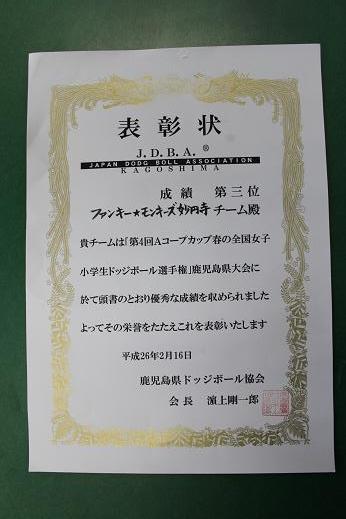 表彰状
J.D.B.A.®
JAPAN DODG BOLL ASSOCIATION
KAGOSHIMA
成績 第三位
ファンキー★モンキーズ妙円寺 チーム殿
貴チームは「第4回Aコープカップ春の全国女子
小学生ドッジボール選手権」鹿児島県大会に
於て頭書のとおり優秀な成績を収められました
よってその栄誉をたたえこれを表彰いたします
平成26年2月16日
鹿児島県ドッジボール協会
会長 濵上剛一郎